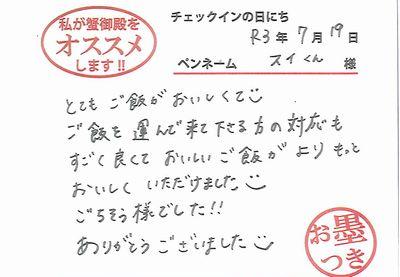 私が蟹御殿を
オススメ
します!!
チェックインの日にち
R3年7月19日
ペンネーム スイくん 様
とても ご飯がおいしくて
ご飯を運んで来て下さる方の対応も
すごく良くて おいしいご飯が より もっと
おいしく いただけました
ごちそう様でした!!
ありがとうございました
お墨
つき